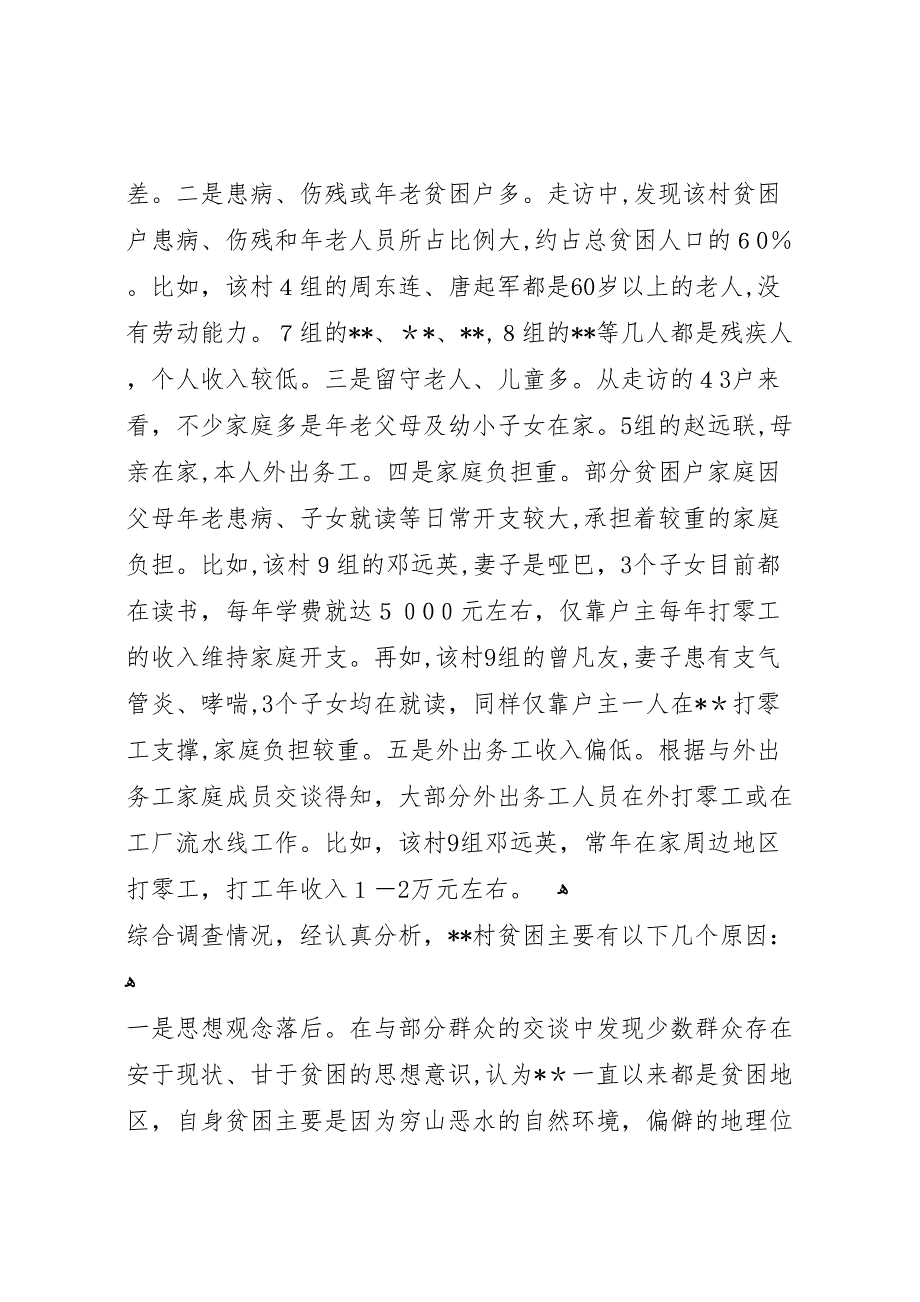 差。二是患病、伤残或年老贫困户多。走访中,发现该村贫困
户患病、伤残和年老人员所占比例大,约占总贫困人口的６０％
。比如，该村４组的周东连、唐起军都是60岁以上的老人,没
有劳动能力。７组的**、＊*、**,８组的**等几人都是残疾人
，个人收入较低。三是留守老人、儿童多。从走访的４3户来
看，不少家庭多是年老父母及幼小子女在家。5组的赵远联,母
亲在家,本人外出务工。四是家庭负担重。部分贫困户家庭因
父母年老患病、子女就读等日常开支较大,承担着较重的家庭
负担。比如,该村９组的邓远英,妻子是哑巴，3个子女目前都
在读书，每年学费就达５０００元左右，仅靠户主每年打零工
的收入维持家庭开支。再如,该村9组的曾凡友,妻子患有支气
管炎、哮喘,3个子女均在就读，同样仅靠户主一人在*＊打零
工支撑,家庭负担较重。五是外出务工收入偏低。根据与外出
务工家庭成员交谈得知，大部分外出务工人员在外打零工或在
工厂流水线工作。比如，该村9组邓远英，常年在家周边地区
打零工，打工年收入１－2万元左右。 ﻫ
综合调查情况，经认真分析，**村贫困主要有以下几个原因：
ﻫ
一是思想观念落后。在与部分群众的交谈中发现少数群众存在
安于现状、甘于贫困的思想意识,认为*＊一直以来都是贫困地
区，自身贫困主要是因为穷山恶水的自然环境，偏僻的地理位